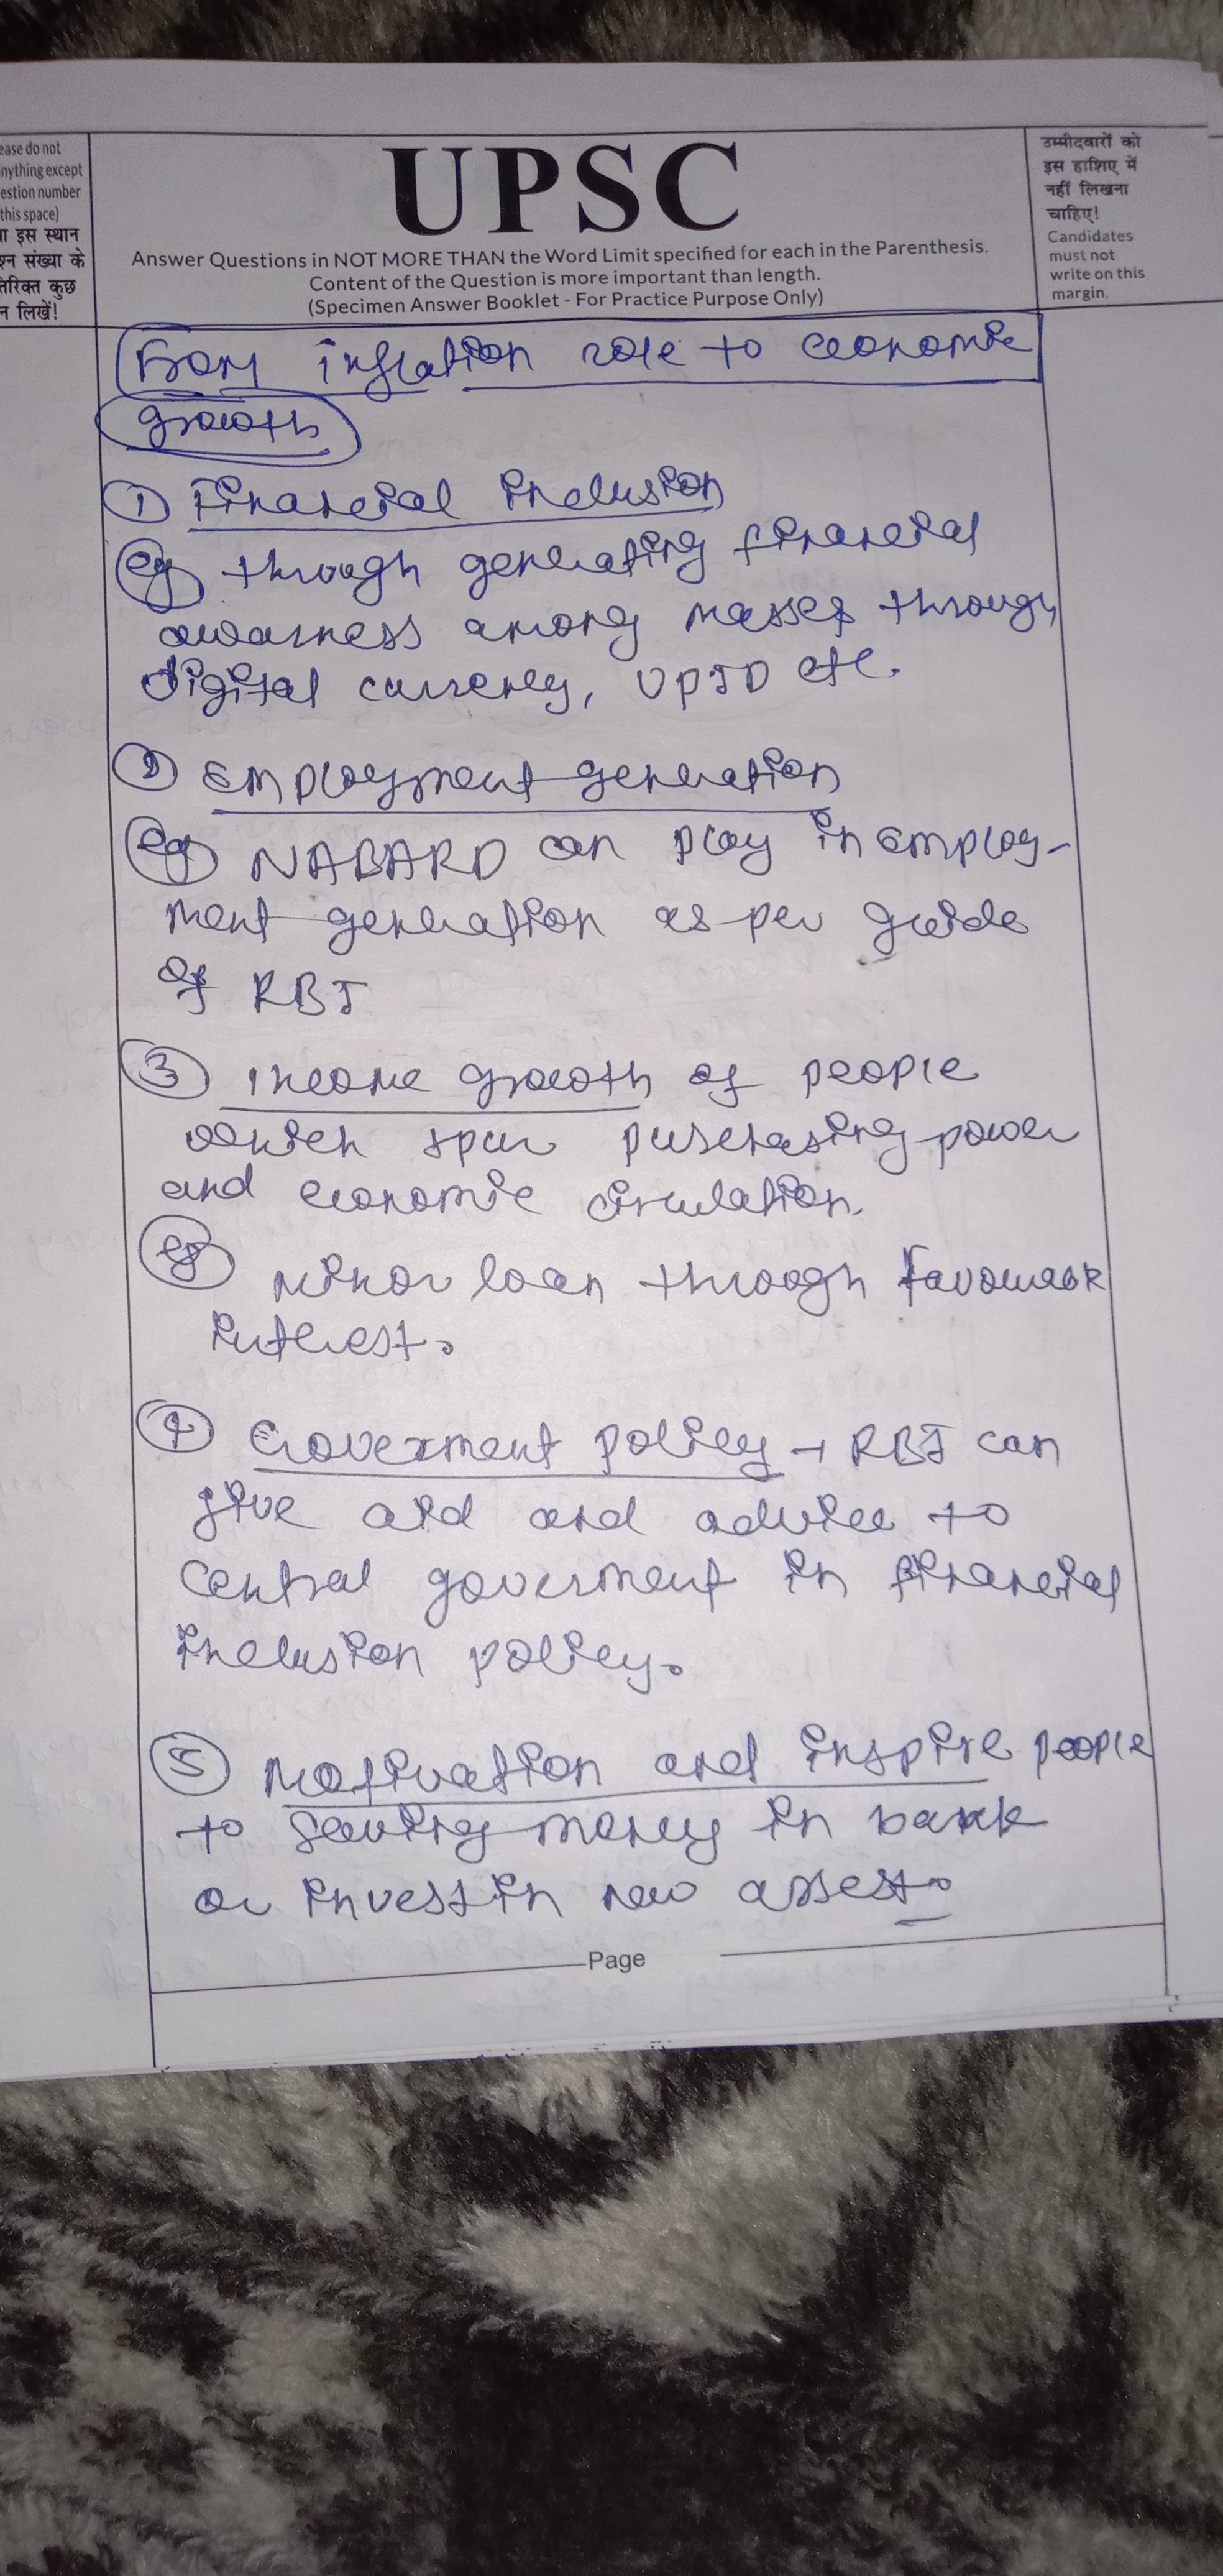 ease do not
nything except
estion number
this space)
ा इस स्थान
श्न संख्या के
तिरिक्त कुछ
न लिखें!
UPSC
Answer Questions in NOT MORE THAN the Word Limit specified for each in the Parenthesis.
Content of the Question is more important than length.
(Specimen Answer Booklet - For Practice Purpose Only)
उम्मीदवारों को
इस हाशिए में
नहीं लिखना
चाहिए!
Candidates
must not
write on this
margin.
From inflation role to economic
growth
① Financial inclusion
eg through generating financial
awarness among masses through
digital currency, UPID etc.
② Employment generation
eg NABARD can play in employ-
ment generation as per guide
of RBI
③ income growth of people
which spur purchasing power
and economic circulation.
eg minor loan through
interest.
④ Goverment policy → RBI can
give aid and advice to
central goverment in financial
inclusion policy.
⑤ Motivation and inspire people
to saving money in bank
or invest in new assest.
Page